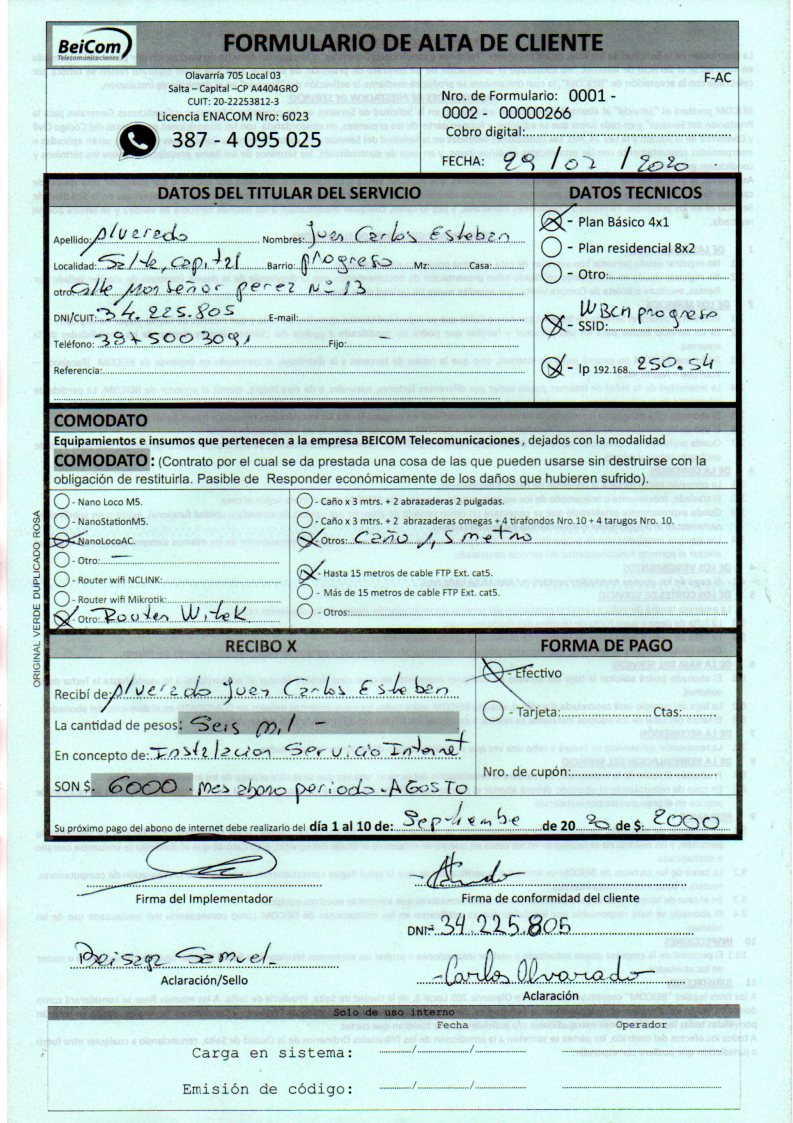 BeiCom
Telecomunicaciones
FORMULARIO DE ALTA DE CLIENTE
Olavarría 705 Local 03
Salta – Capital –CP A4404GRO
CUIT: 20-22253812-3
Licencia ENACOM Nro: 6023
387 - 4 095 025
F-AC
Nro. de Formulario: 0001 -
0002 - 00000266
Cobro digital:
FECHA: 29 / 07 / 2020
DATOS DEL TITULAR DEL SERVICIO
Apellido: Alvarado Nombres: Juan Carlos Esteban
Localidad: Salta, capital Barrio: progreso Mz: Casa:
otro: calle monseñor perez Nº 13
DNI/CUIT: 34.225.805 E-mail:
Teléfono: 3875003091 Fijo: -
Referencia:
DATOS TECNICOS
- Plan Básico 4x1
- Plan residencial 8x2
- Otro:
- SSID: WBcn progreso
- Ip 192.168. 250.54
COMODATO
Equipamientos e insumos que pertenecen a la empresa BEICOM Telecomunicaciones, dejados con la modalidad
COMODATO: (Contrato por el cual se da prestada una cosa de las que pueden usarse sin destruirse con la
obligación de restituirla. Pasible de Responder económicamente de los daños que hubieren sufrido).
- Nano Loco M5.
- NanoStationM5.
- NanoLocoAC.
- Otro: —
- Router wifi NCLINK:
- Router wifi Mikrotik:
- Otro: Router Witek
- Caño x 3 mtrs. + 2 abrazaderas 2 pulgadas.
- Caño x 3 mtrs. + 2 abrazaderas omegas + 4 tirafondos Nro.10 + 4 tarugos Nro. 10.
Otros: Caño 1,5 metro
- Hasta 15 metros de cable FTP Ext. cat5.
- Más de 15 metros de cable FTP Ext. cat5.
- Otros:
ORIGINAL VERDE DUPLICADO ROSA
RECIBO X
Recibí de: Alvarado Juan Carlos Esteban
La cantidad de pesos: Seis mil -
En concepto de: Instalacion Servicio Internet
SON $. 6000 . mes abono periodo - AGOSTO
FORMA DE PAGO
- Efectivo
- Tarjeta: Ctas:
Nro. de cupón:
Su próximo pago del abono de internet debe realizarlo del día 1 al 10 de: Septiembre de 20 20 de $: 2000
Firma del Implementador
Firma de conformidad del cliente
DNI: 34.225.805
Beisaga Samuel
Aclaración/Sello
- Carlos Alvarado
Aclaración
Solo de uso interno
Fecha Operador
Carga en sistema: / /
Emisión de código: / /